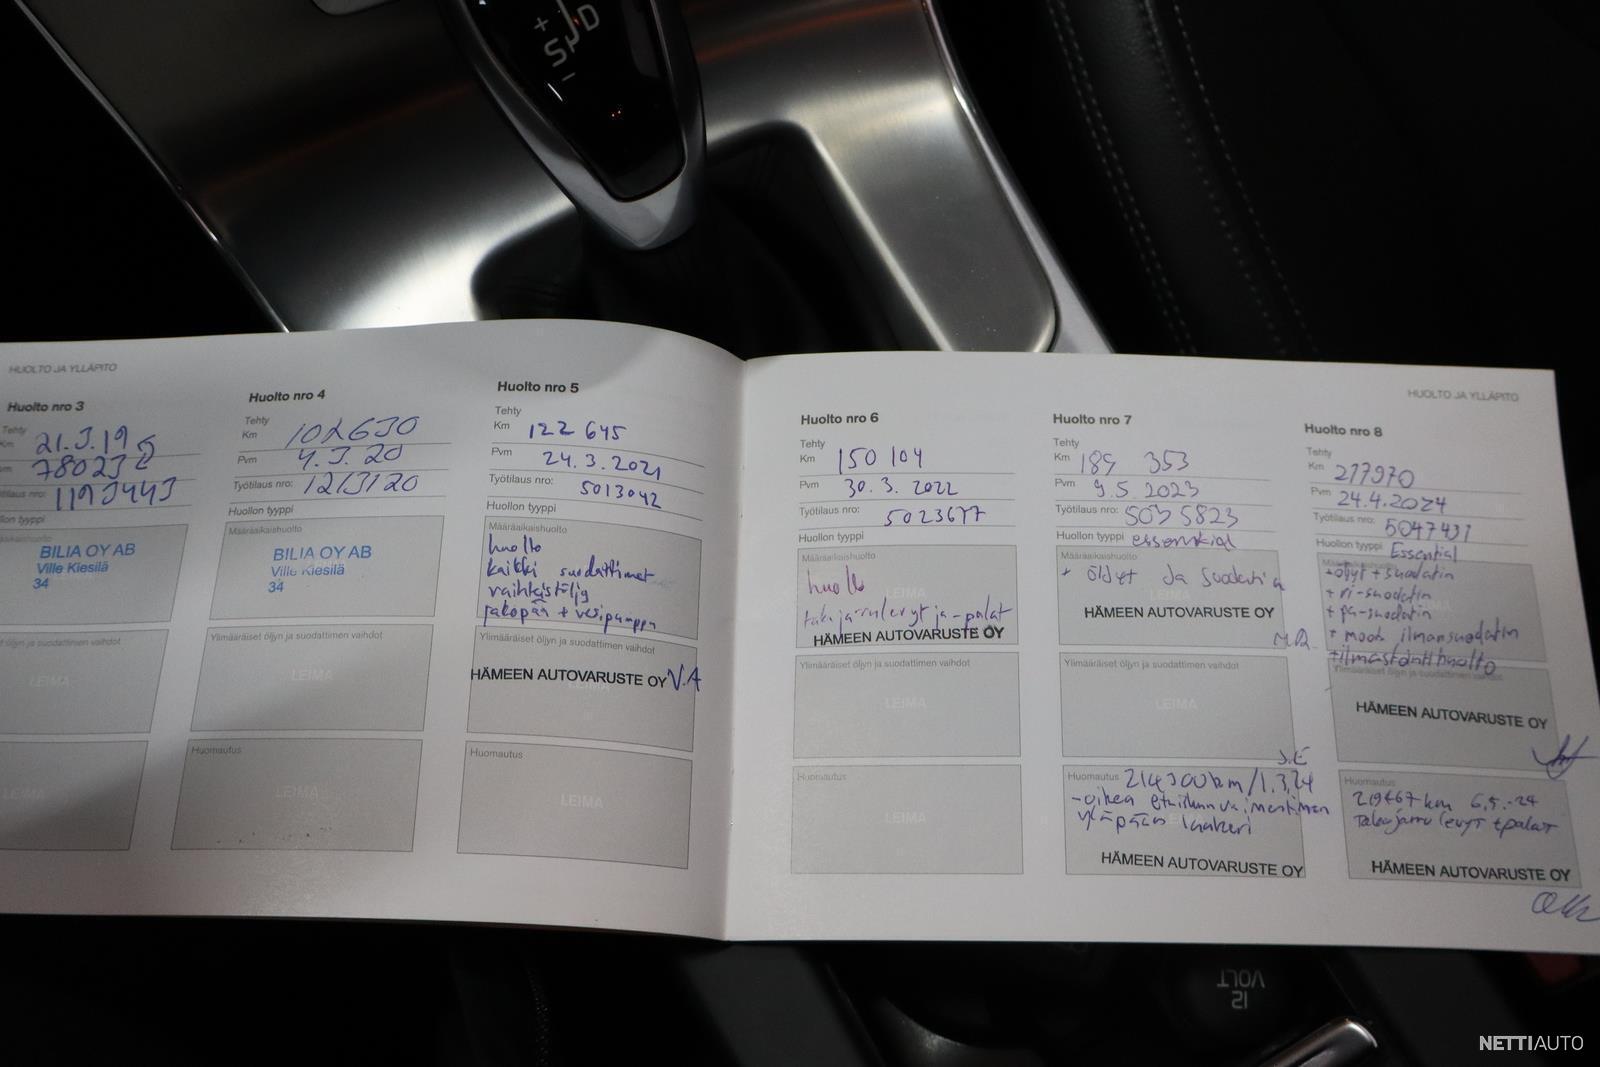 +
S D
−
HUOLTO JA YLLÄPITO
Huolto nro 3
Tehty
Km
21.3.19
78023
1193443
BILIA OY AB
Ville Kiesilä
34
LEIMA
LEIMA
Huolto nro 4
Tehty
Km 102630
Pvm 4.3.20
Työtilaus nro: 1213120
Huollon tyyppi
Määräaikaishuolto
BILIA OY AB
Ville Kiesilä
34
Ylimääräiset öljyn ja suodattimen vaihdot
LEIMA
Huomautus
LEIMA
Huolto nro 5
Tehty
Km 122 645
Pvm 24.3.2021
Työtilaus nro: 5013042
Huollon tyyppi
Määräaikaishuolto
huolto
kaikki suodattimet
vaihteistoöljy
jakopää + vesipumppu
Ylimääräiset öljyn ja suodattimen vaihdot
HÄMEEN AUTOVARUSTE OY V.A
LEIMA
Huomautus
LEIMA
Huolto nro 6
Tehty
Km 150 104
Pvm 30.3.2022
Työtilaus nro: 5023677
Huollon tyyppi
Määräaikaishuolto
huolto
takajarrulevyt ja -palat
HÄMEEN AUTOVARUSTE OY
Ylimääräiset öljyn ja suodattimen vaihdot
LEIMA
Huomautus
LEIMA
HUOLTO JA YLLÄPITO
Huolto nro 7
Tehty
Km 189 353
Pvm 9.5.2023
Työtilaus nro: 5035823
Huollon tyyppi essential
Määräaikaishuolto
+ öljyt ja suodatin
HÄMEEN AUTOVARUSTE OY
Ylimääräiset öljyn ja suodattimen vaihdot
LEIMA
J.E
Huomautus 214300km/1.3.24
- oikea etuiskunvaimentimen
yläpään laakeri
HÄMEEN AUTOVARUSTE OY
Huolto nro 8
Tehty
Km 217970
Pvm 24.4.2024
Työtilaus nro: 5047431
Huollon tyyppi Essential
Määräaikaishuolto
+öljyt + suodatin
+ ri-suodatin
+ pa-suodatin
+ moot ilmansuodatin
+ilmastointihuolto
Ylimääräiset öljyn ja suodattimen vaihdot
HÄMEEN AUTOVARUSTE OY
Huomautus
219467 km 6.5.-24
Takajarru levyt + palat
HÄMEEN AUTOVARUSTE OY
12
VOLT
NETTIAUTO